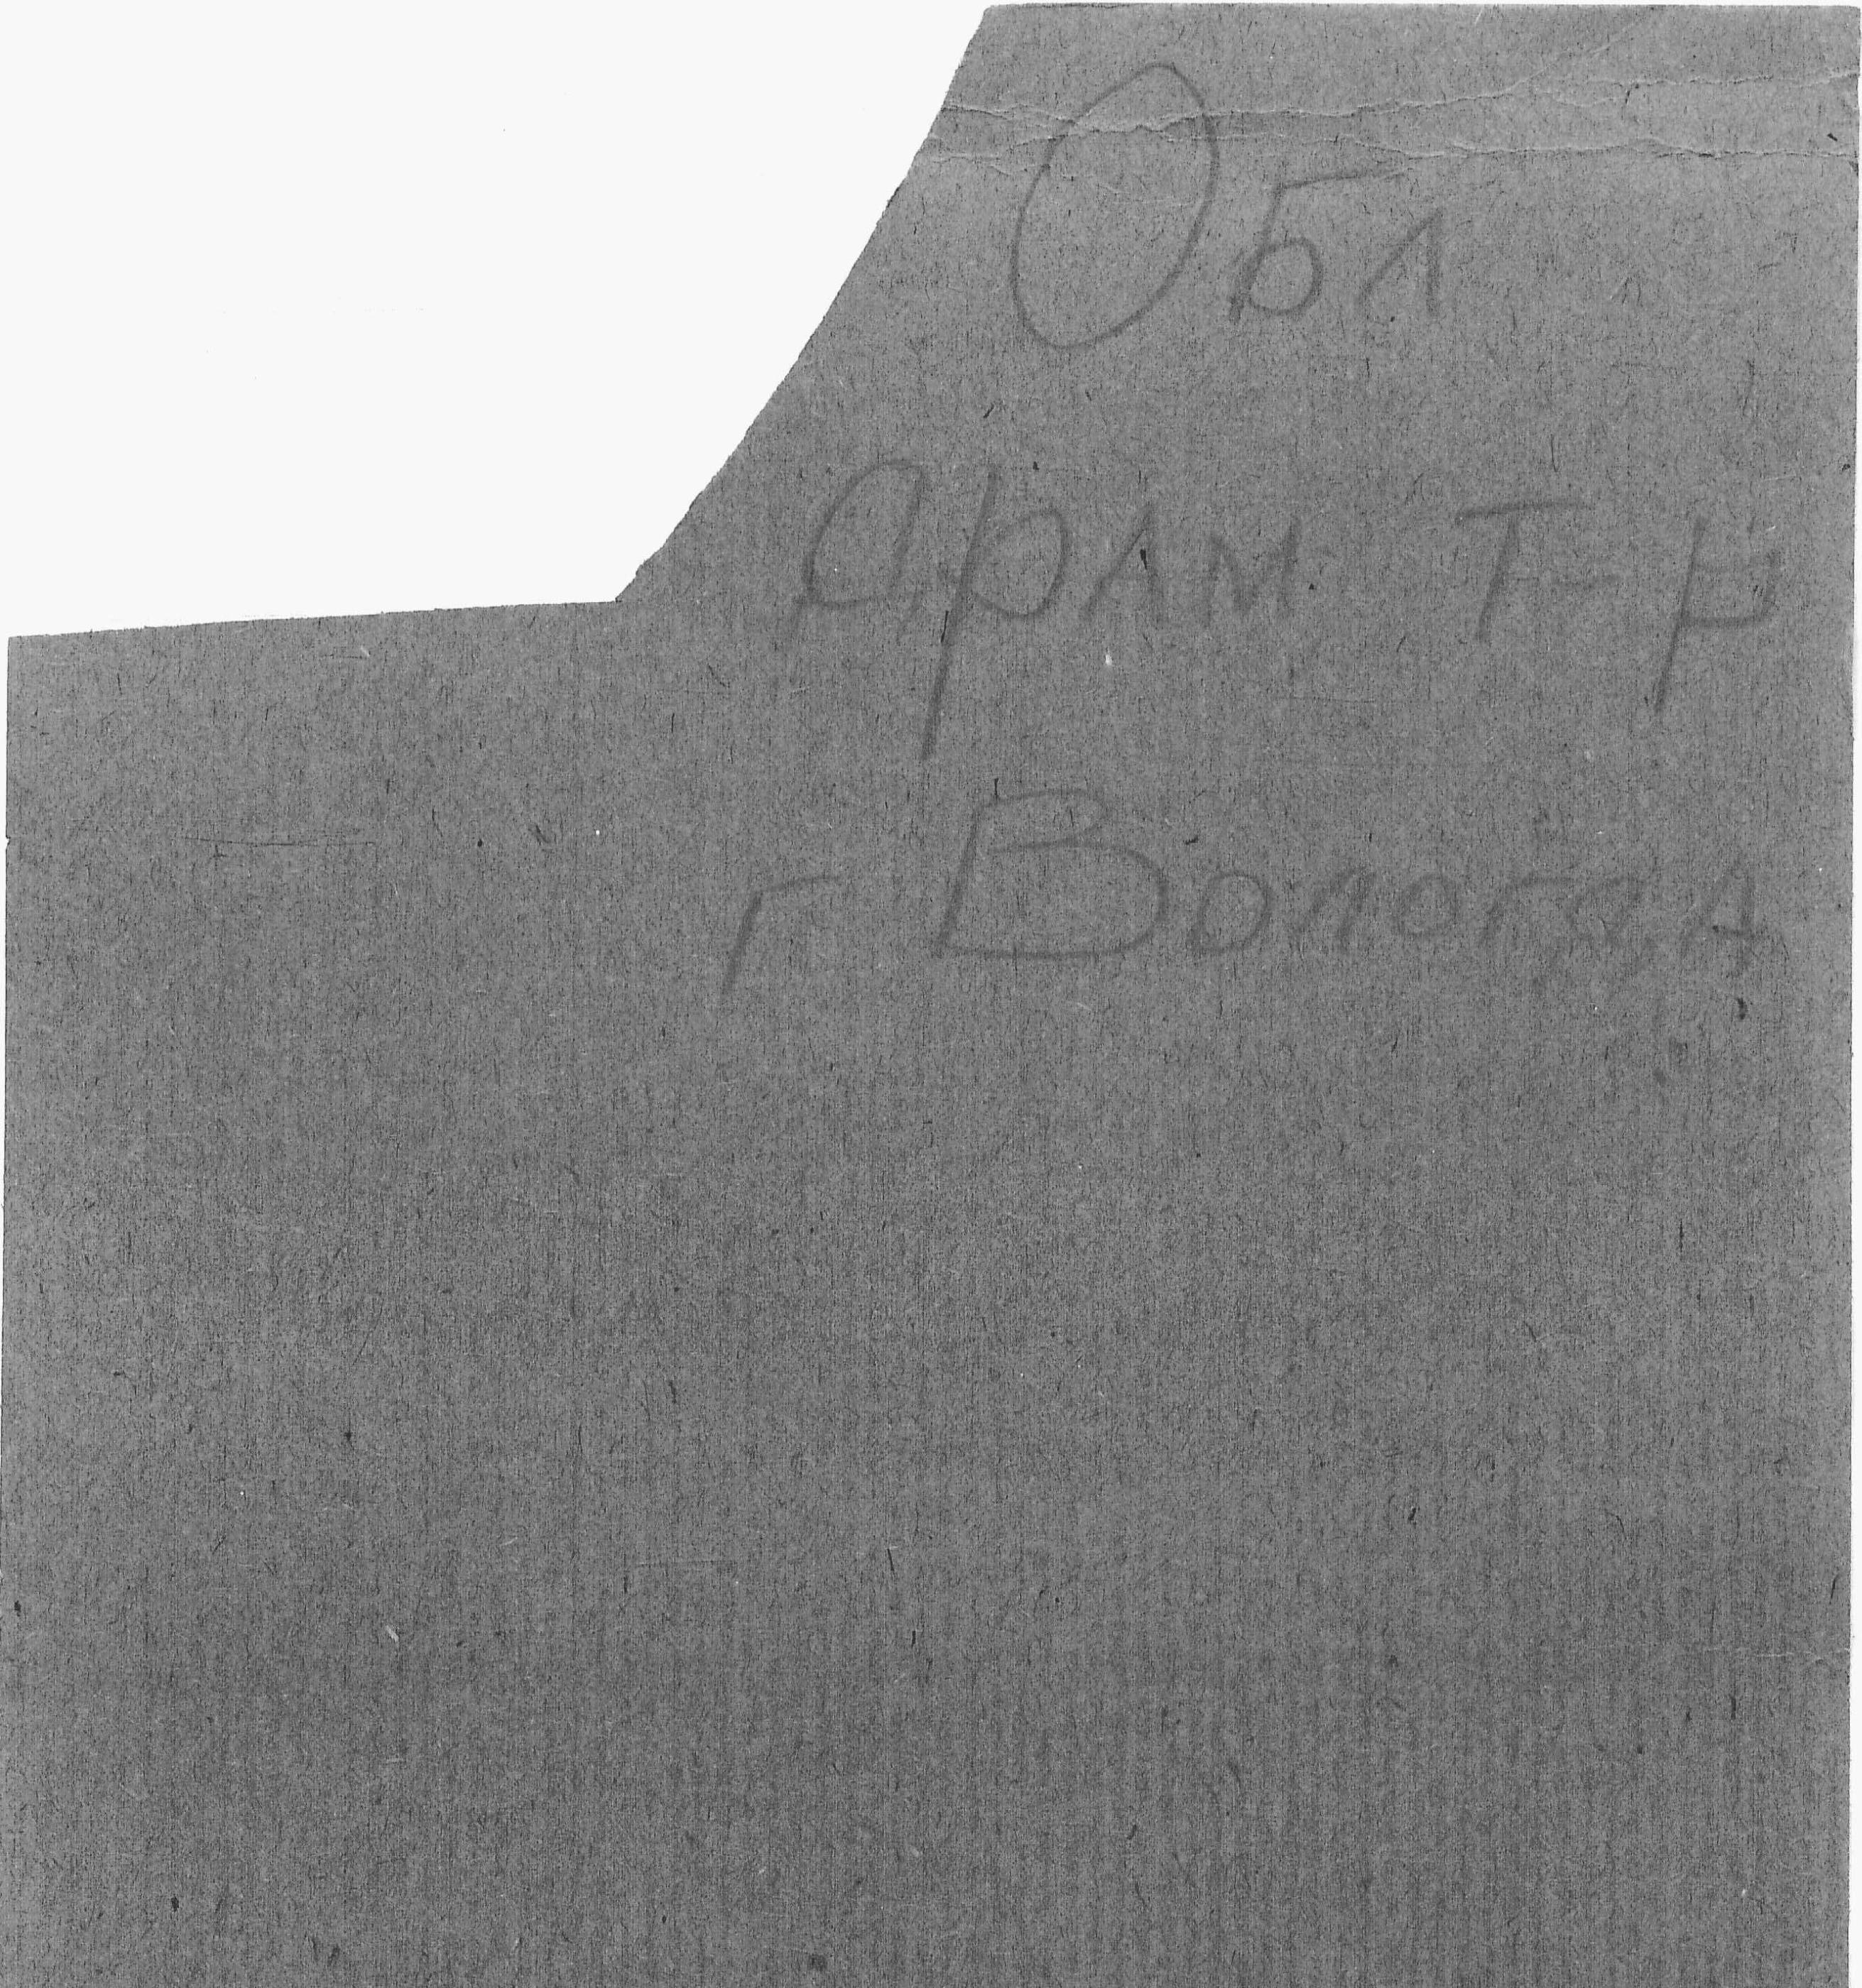 Обл
Драм Т-р
г Вологда